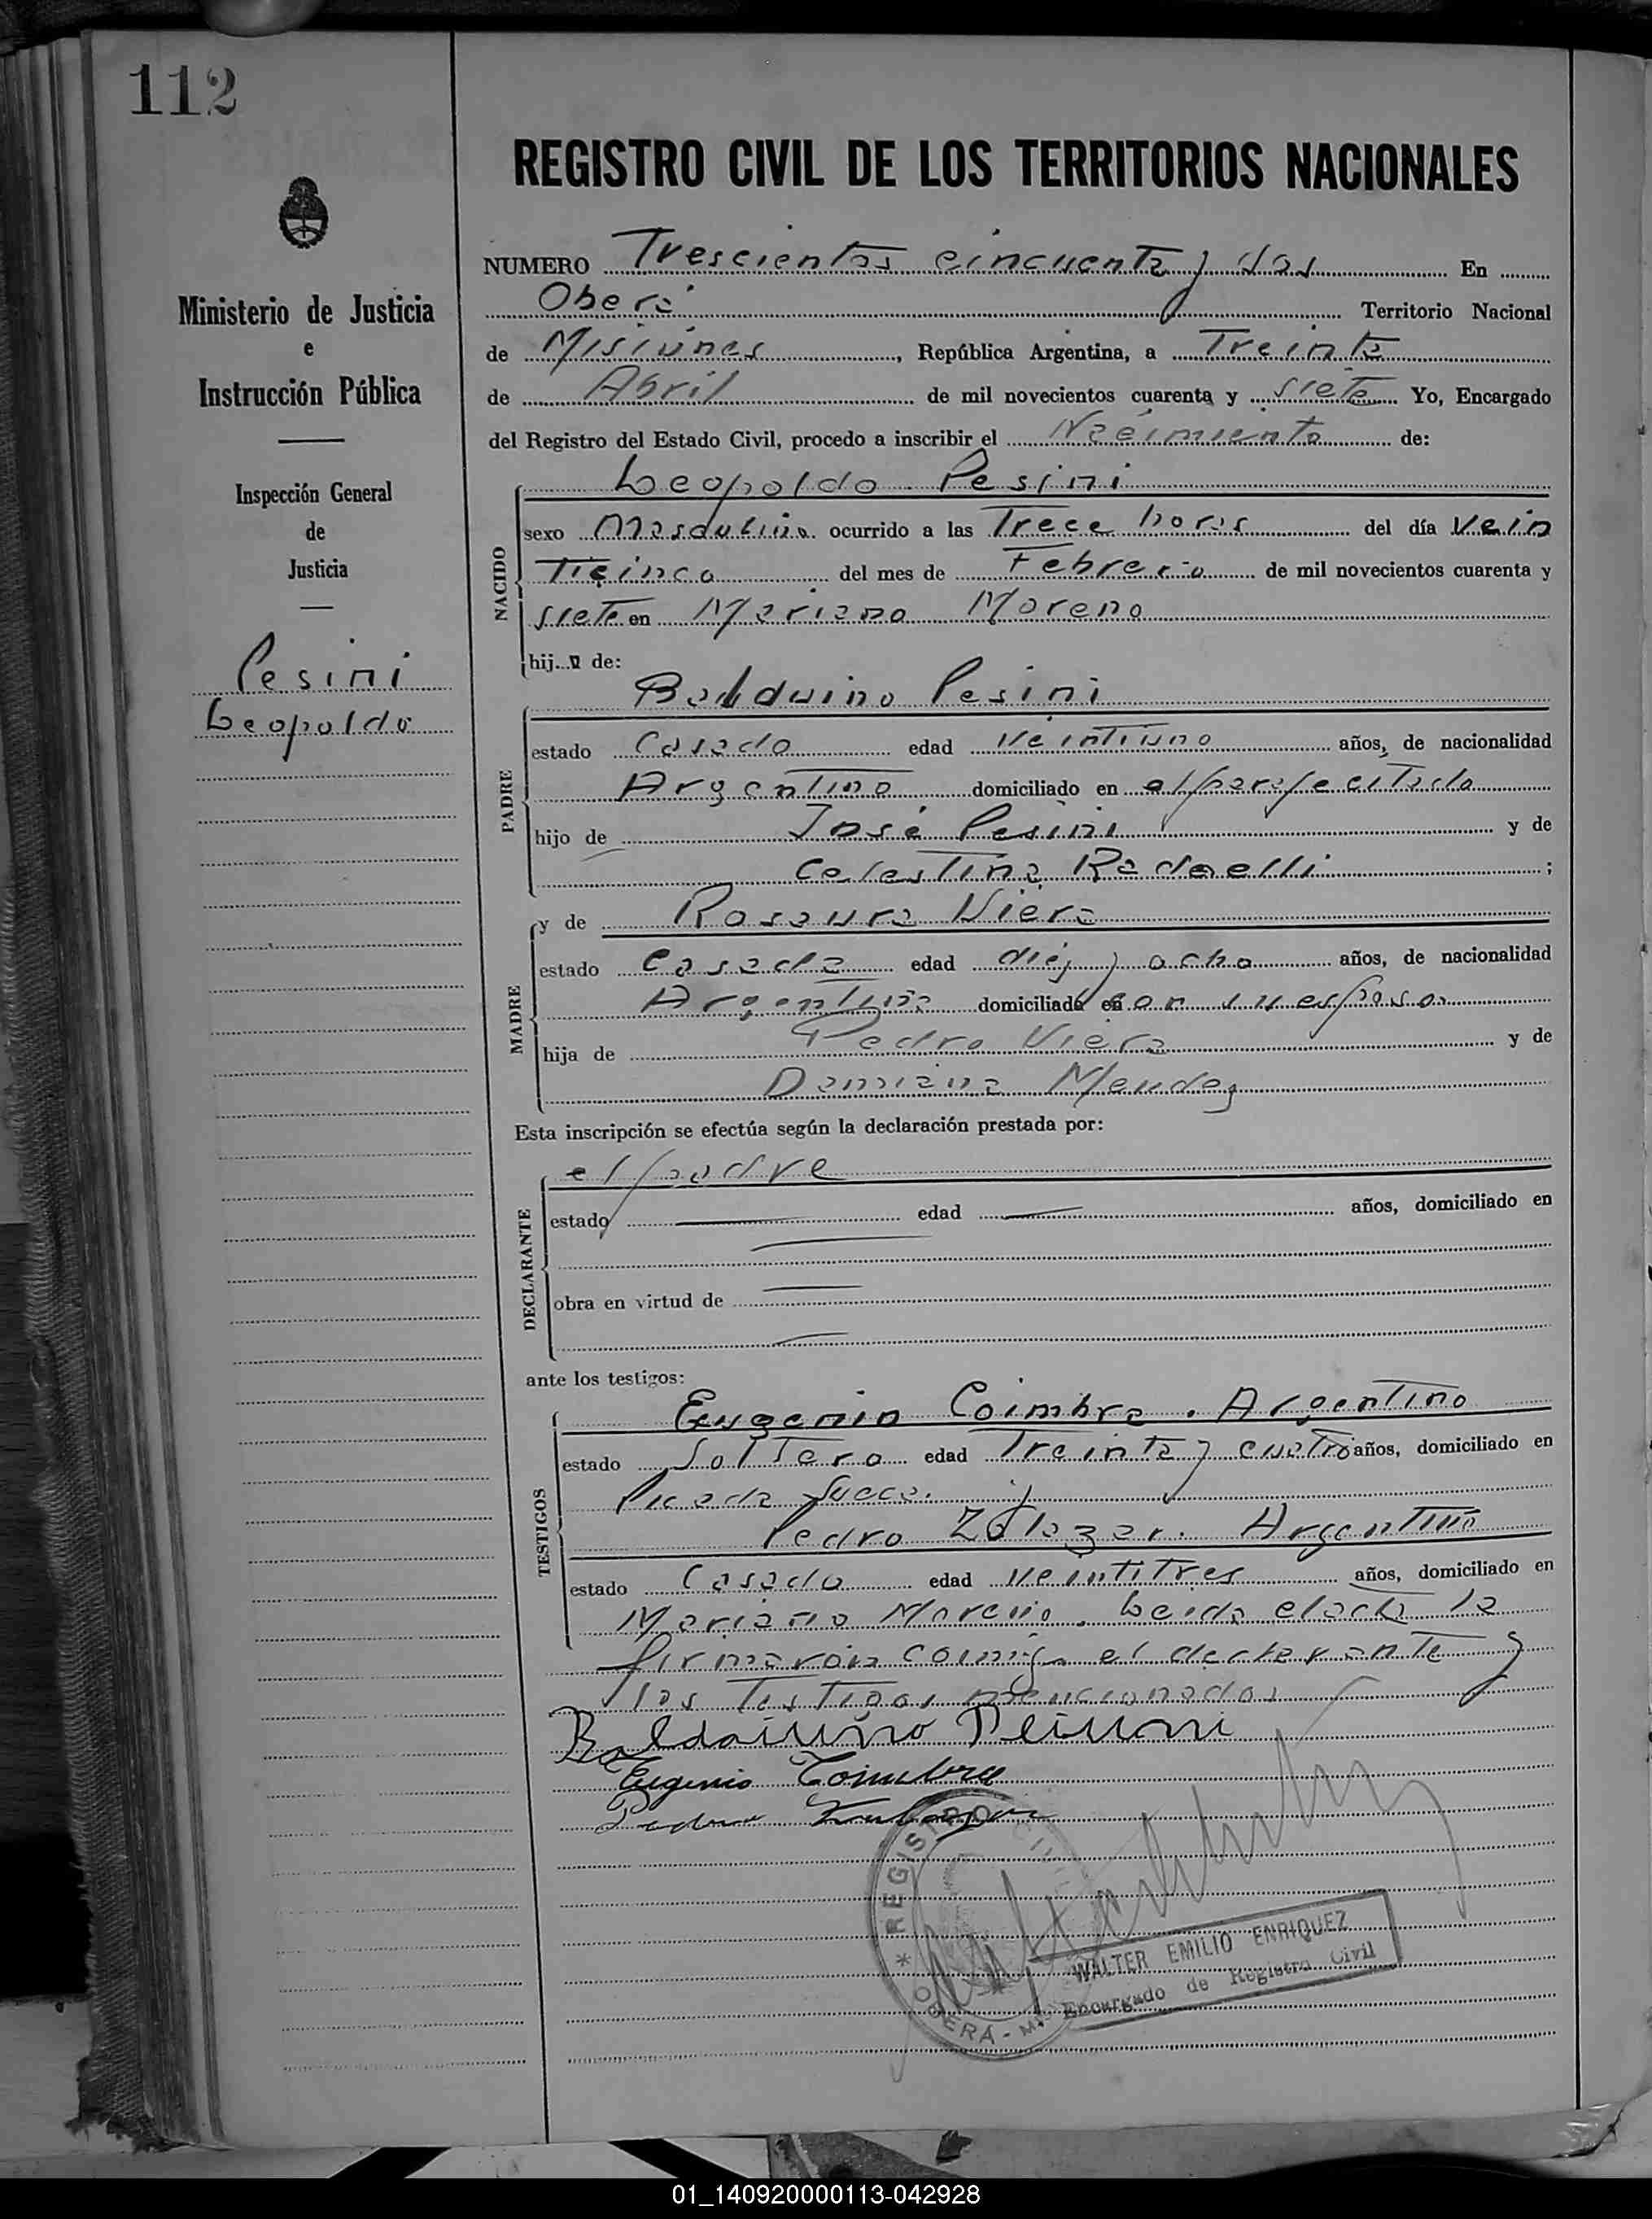 112
REGISTRO CIVIL DE LOS TERRITORIOS NACIONALES
Ministerio de Justicia
e
Instrucción Pública
Inspección General
de
Justicia
Pesini
Leopoldo
NUMERO Trescientos cincuenta y dos En
Oberá Territorio Nacional
de Misiones, República Argentina, a Treinta
de Abril de mil novecientos cuarenta y siete Yo, Encargado
del Registro del Estado Civil, procedo a inscribir el Nacimiento de:
Leopoldo Pesini
NACIDO
sexo Masculino ocurrido a las Trece horas del día Vein
Ticinco del mes de Febrero de mil novecientos cuarenta y
siete en Mariano Moreno
hijo de:
Balduino Pesini
PADRE
estado Casado edad Veintiuno años, de nacionalidad
Argentino domiciliado en el paraje citado
hijo de José Pesini y de
Celestina Radaelli;
MADRE
y de Rosaura Viera
estado Casada edad diez y ocho años, de nacionalidad
Argentina domiciliada con su esposo
hija de Pedro Viera y de
Damiana Mendez
Esta inscripción se efectúa según la declaración prestada por:
el padre
DECLARANTE
estado edad años, domiciliado en
obra en virtud de
ante los testigos:
Eugenio Coimbra. Argentino
TESTIGOS
estado Soltero edad Treinta y cuatro años, domiciliado en
Picada
Pedro Argentino
estado Casado edad Veintitres años, domiciliado en
Mariano Moreno. Leida el acta la
firmaron conmigo el declarante y
los Testigos mencionados
Eugenio Coimbra
Pedro
REGISTRO CIVIL
OBERA - 
WALTER EMILIO ENRIQUEZ
Encargado de Registro Civil
01_140920000113-042928